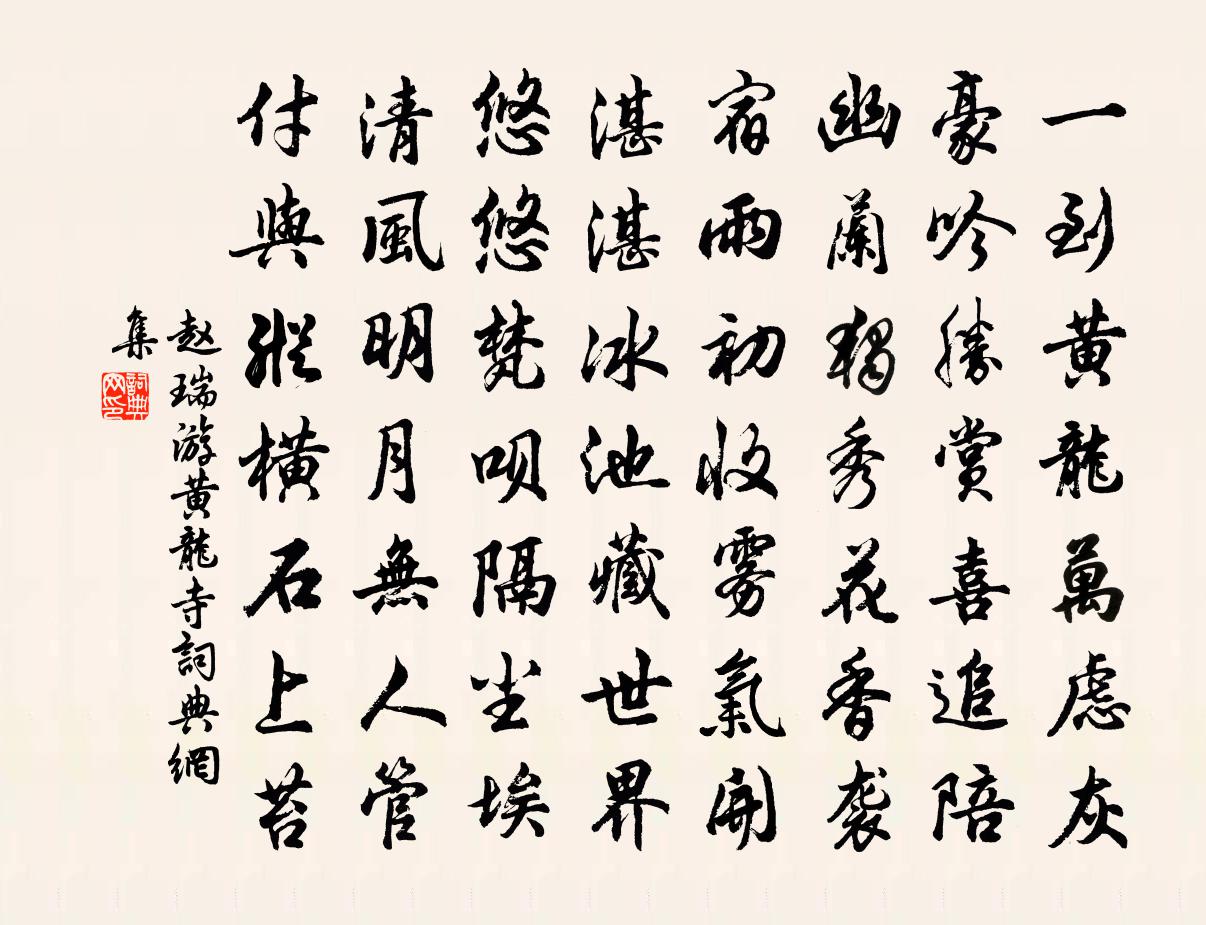 一到黄龍萬慮灰
豪吟勝賞喜追陪
幽蘭獨秀花香袭
宿雨初收雾氣開
湛湛冰池藏世界
悠悠梵呗隔尘埃
清風明月無人管
付與縱橫石上苔
赵瑞游黄龍寺詞典網
集
詞典
网印